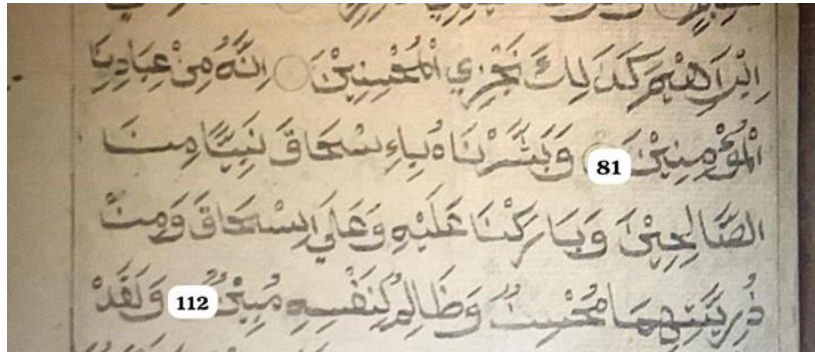 اِبْرَاهِيْمَ كَذَلِكَ نَجْزِي الْمُحْسِنِيْنَ اِنَّهُ مِنْ عِبَادِنَا
الْمُؤْمِنِيْنَ 81 وَبَشَّرْنَاهُ بِاِسْحَاقَ نَبِيًّا مِنَ
الصَّالِحِيْنَ وَبَارَكْنَا عَلَيْهِ وَعَلَى اِسْحَاقَ وَمِنْ
ذُرِيَّتِهِمَا مُحْسِنٌ وَظَالِمٌ لِنَفْسِهِ مُبِيْنٌ 112 وَلَقَدْ